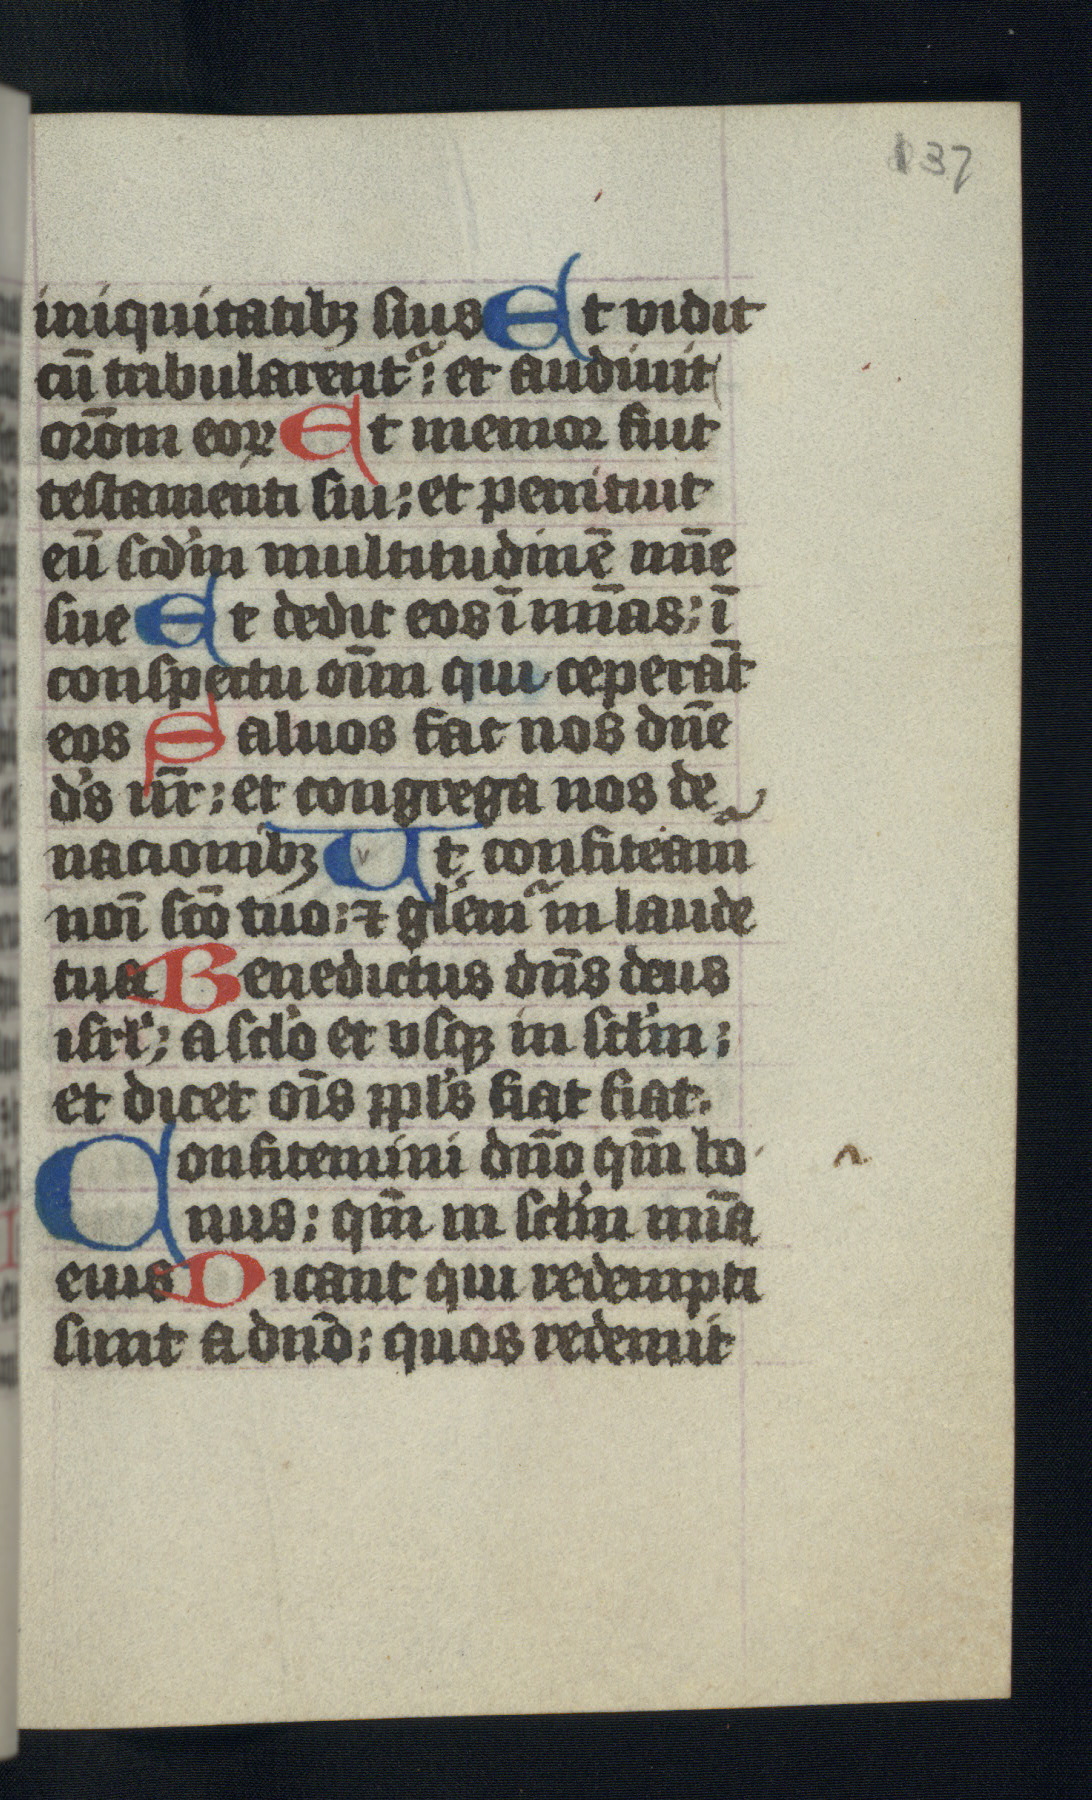 137
iniquitatibꝫ suis Et vidit
cū tribularentᷓ: et audiuit
orōm eoꝝ Et memor fuit
testamenti sui: et penituit
eū scd'm multitudinē mīe
sue Et dedit eos ī mīas: ī
conspectu oīm qui ceperāt
eos Saluos fac nos dn̄e
d's nr̄: et congrega nos de
nacionibꝫ Ut confiteamᷓ
noī sc̄o tuo: ⁊ gl'emᷓ in laude
tua Benedictus dn̄s deus
isrl': a scl'o et vsqꝫ in scl'm:
et dicet oīs ppl's fiat fiat.
Confitemini dn̄o qm̄ bo
nus: qm̄ in scl'm mīa
eius Dicant qui redempti
sunt a dn̄o: quos redemit